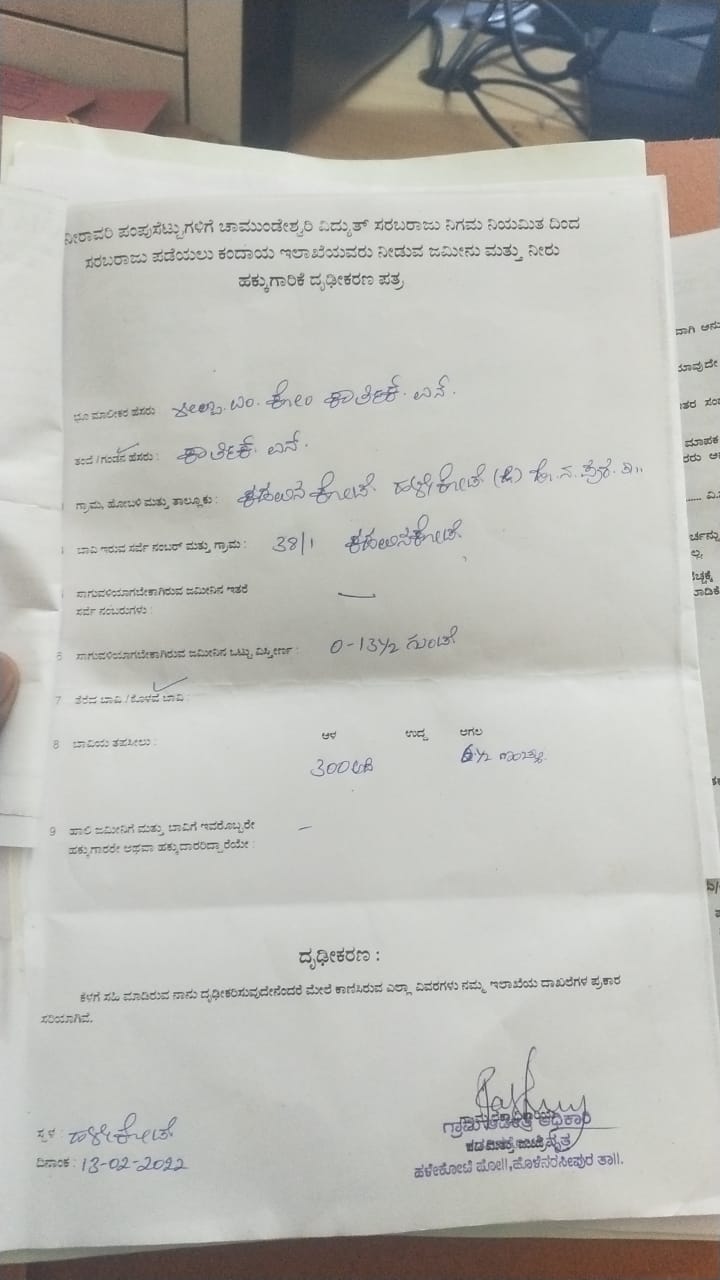 ನೀರಾವರಿ ಪಂಪುಸೆಟ್ಟುಗಳಿಗೆ ಚಾಮುಂಡೇಶ್ವರಿ ವಿದ್ಯುತ್ ಸರಬರಾಜು ನಿಗಮ ನಿಯಮಿತ ದಿಂದ
ಸರಬರಾಜು ಪಡೆಯಲು ಕಂದಾಯ ಇಲಾಖೆಯವರು ನೀಡುವ ಜಮೀನು ಮತ್ತು ನೀರು
ಹಕ್ಕುಗಾರಿಕೆ ದೃಢೀಕರಣ ಪತ್ರ
ಭೂ ಮಾಲೀಕರ ಹೆಸರು ಎಂ. ಕೋಂ ಕಾರ್ತಿಕ್. ಎನ್.
ತಂದೆ / ಗಂಡನ ಹೆಸರು : ಕಾರ್ತಿಕ್. ಎನ್.
ಗ್ರಾಮ, ಹೋಬಳಿ ಮತ್ತು ತಾಲ್ಲೂಕು : ಹಳೇಕೋಟೆ (ಹೋ)
ಬಾವಿ ಇರುವ ಸರ್ವೆ ನಂಬರ್ ಮತ್ತು ಗ್ರಾಮ : 38/1
ಸಾಗುವಳಿಯಾಗಬೇಕಾಗಿರುವ ಜಮೀನಿನ ಇತರೆ
ಸರ್ವೆ ನಂಬರುಗಳು :
6 ಸಾಗುವಳಿಯಾಗಬೇಕಾಗಿರುವ ಜಮೀನಿನ ಒಟ್ಟು ವಿಸ್ತೀರ್ಣ : 0-13½ ಗುಂಟೆ
7 ತೆರೆದ ಬಾವಿ / ಕೊಳವೆ ಬಾವಿ :
8 ಬಾವಿಯ ತಪಸೀಲು : ಆಳ ಉದ್ದ ಅಗಲ
300 ಅಡಿ 6½ ಇಂಚು
9 ಹಾಲಿ ಜಮೀನಿಗೆ ಮತ್ತು ಬಾವಿಗೆ ಇವರೊಬ್ಬರೇ
ಹಕ್ಕುಗಾರರೇ ಅಥವಾ ಹಕ್ಕುದಾರರಿದ್ದಾರೆಯೇ :
ದೃಢೀಕರಣ :
ಕೆಳಗೆ ಸಹಿ ಮಾಡಿರುವ ನಾನು ದೃಢೀಕರಿಸುವುದೇನೆಂದರೆ ಮೇಲೆ ಕಾಣಿಸಿರುವ ಎಲ್ಲಾ ವಿವರಗಳು ನಮ್ಮ ಇಲಾಖೆಯ ದಾಖಲೆಗಳ ಪ್ರಕಾರ
ಸರಿಯಾಗಿವೆ.
ಸ್ಥಳ : ಹಳೇಕೋಟೆ
ದಿನಾಂಕ : 13-02-2022
ಗ್ರಾಮ ಆಡಳಿತ ಅಧಿಕಾರಿ
ಹಳೇಕೋಟೆ ಹೋ||, ಹೊಳೆನರಸೀಪುರ ತಾ||.